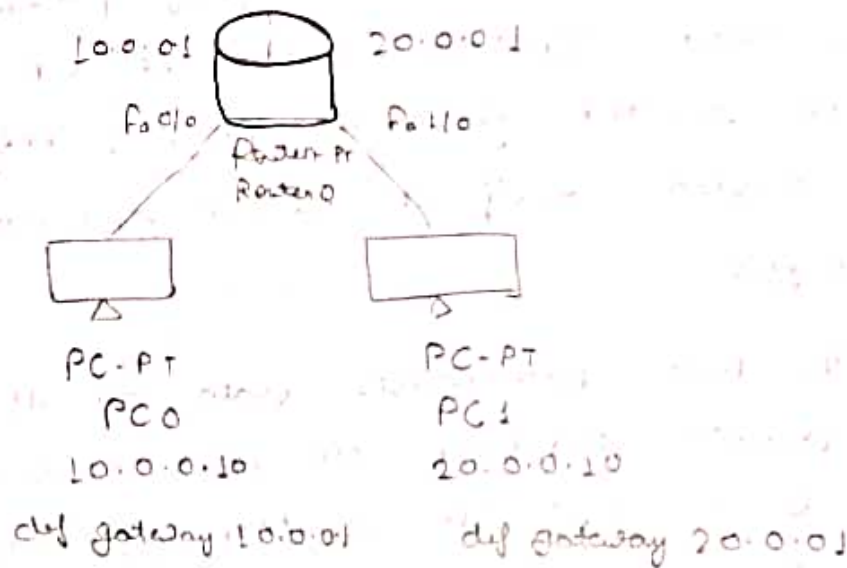 10.0.01 20.0.0.1
Fa 0/0 Fa 1/0
Router PT
Router 0
PC-PT PC-PT
PC0 PC1
10.0.0.10 20.0.0.10
def gateway 10.0.01 def gateway 20.0.01